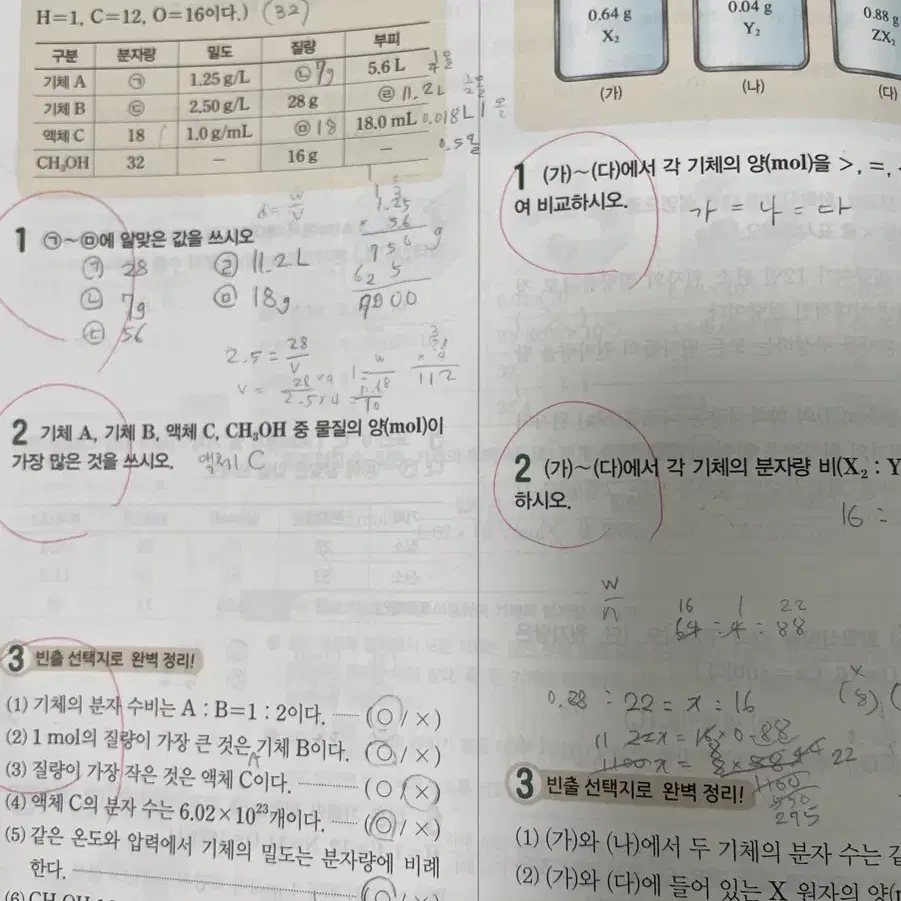 H=1, C=12, O=16이다.) (32)
구분 분자량 밀도 질량 부피
기체 A ㉠ 1.25 g/L ㉡ 7g 5.6 L
기체 B ㉢ 2.50 g/L 28 g ㉣ 11.2L
액체 C 18 1.0 g/mL ㉤ 18 18.0 mL 0.018L 1몰
CH₃OH 32 — 16 g — 0.5몰
1 ㉠~㉤에 알맞은 값을 쓰시오
㉠ 28 ㉣ 11.2L
㉡ 7g ㉤ 18g
㉢ 56
d = w/V
1.25
× 5.6
2.5 = 28/V
112
2 기체 A, 기체 B, 액체 C, CH₃OH 중 물질의 양(mol)이
가장 많은 것을 쓰시오. 액체 C
3 빈출 선택지로 완벽 정리!
(1) 기체의 분자 수비는 A : B=1 : 2이다. (○/×)
(2) 1 mol의 질량이 가장 큰 것은 기체 B이다. (○/×)
(3) 질량이 가장 작은 것은 액체 C이다. (○/×)
A
(4) 액체 C의 분자 수는 6.02×10²³개이다. (○/×)
(5) 같은 온도와 압력에서 기체의 밀도는 분자량에 비례
한다. (○
0.64 g
X₂
(가)
0.04 g
Y₂
(나)
0.88 g
ZX₂
(다)
1 (가)~(다)에서 각 기체의 양(mol)을 >, =,
여 비교하시오. 가 = 나 = 다
2 (가)~(다)에서 각 기체의 분자량 비(X₂ : Y
하시오.
16 :
w/n
16 1 22
64 : 4 : 88
: 22 = x : 16
3 빈출 선택지로 완벽 정리!
22
295
(1) (가)와 (나)에서 두 기체의 분자 수는 같
(2) (가)와 (다)에 들어 있는 X 원자의 양(